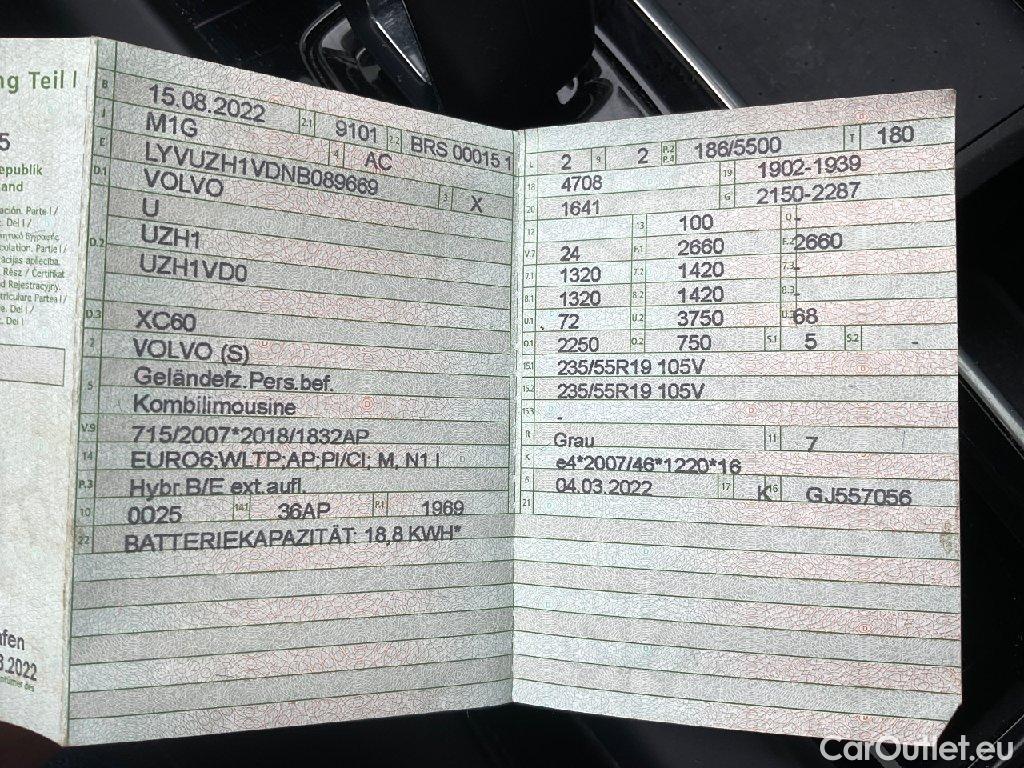 ng Teil I
5
epublik
and
B 15.08.2022 2.1 9101 2.2 BRS 00015 1
J M1G 4 AC
E LYVUZH1VDNB089669 3 X
D.1 VOLVO
U
D.2 UZH1
UZH1VD0
D.3 XC60
2 VOLVO (S)
5 Geländefz.Pers.bef.
Kombilimousine
V.9 715/2007*2018/1832AP
14 EURO6;WLTP;AP;PI/CI; M, N1 I
P.3 Hybr.B/E ext.aufl.
10 0025 14.1 36AP P.1 1969
22 BATTERIEKAPAZITÄT: 18,8 KWH*
L 2 9 2 P.2 P.4 186/5500 T 180
18 4708 19 1902-1939
20 1641 G 2150-2287
12 13 100 Q -
V.7 24 F.1 2660 F.2 2660
7.1 1320 7.2 1420 7.3 -
8.1 1320 8.2 1420 8.3 -
U.1 72 U.2 3750 U.3 68
O.1 2250 O.2 750 S.1 5 S.2 -
15.1 235/55R19 105V
15.2 235/55R19 105V
15.3 -
R Grau 11 7
K e4*2007/46*1220*16
6 04.03.2022 17 K 16 GJ557056
21
afen
8.2022
CarOutlet.eu